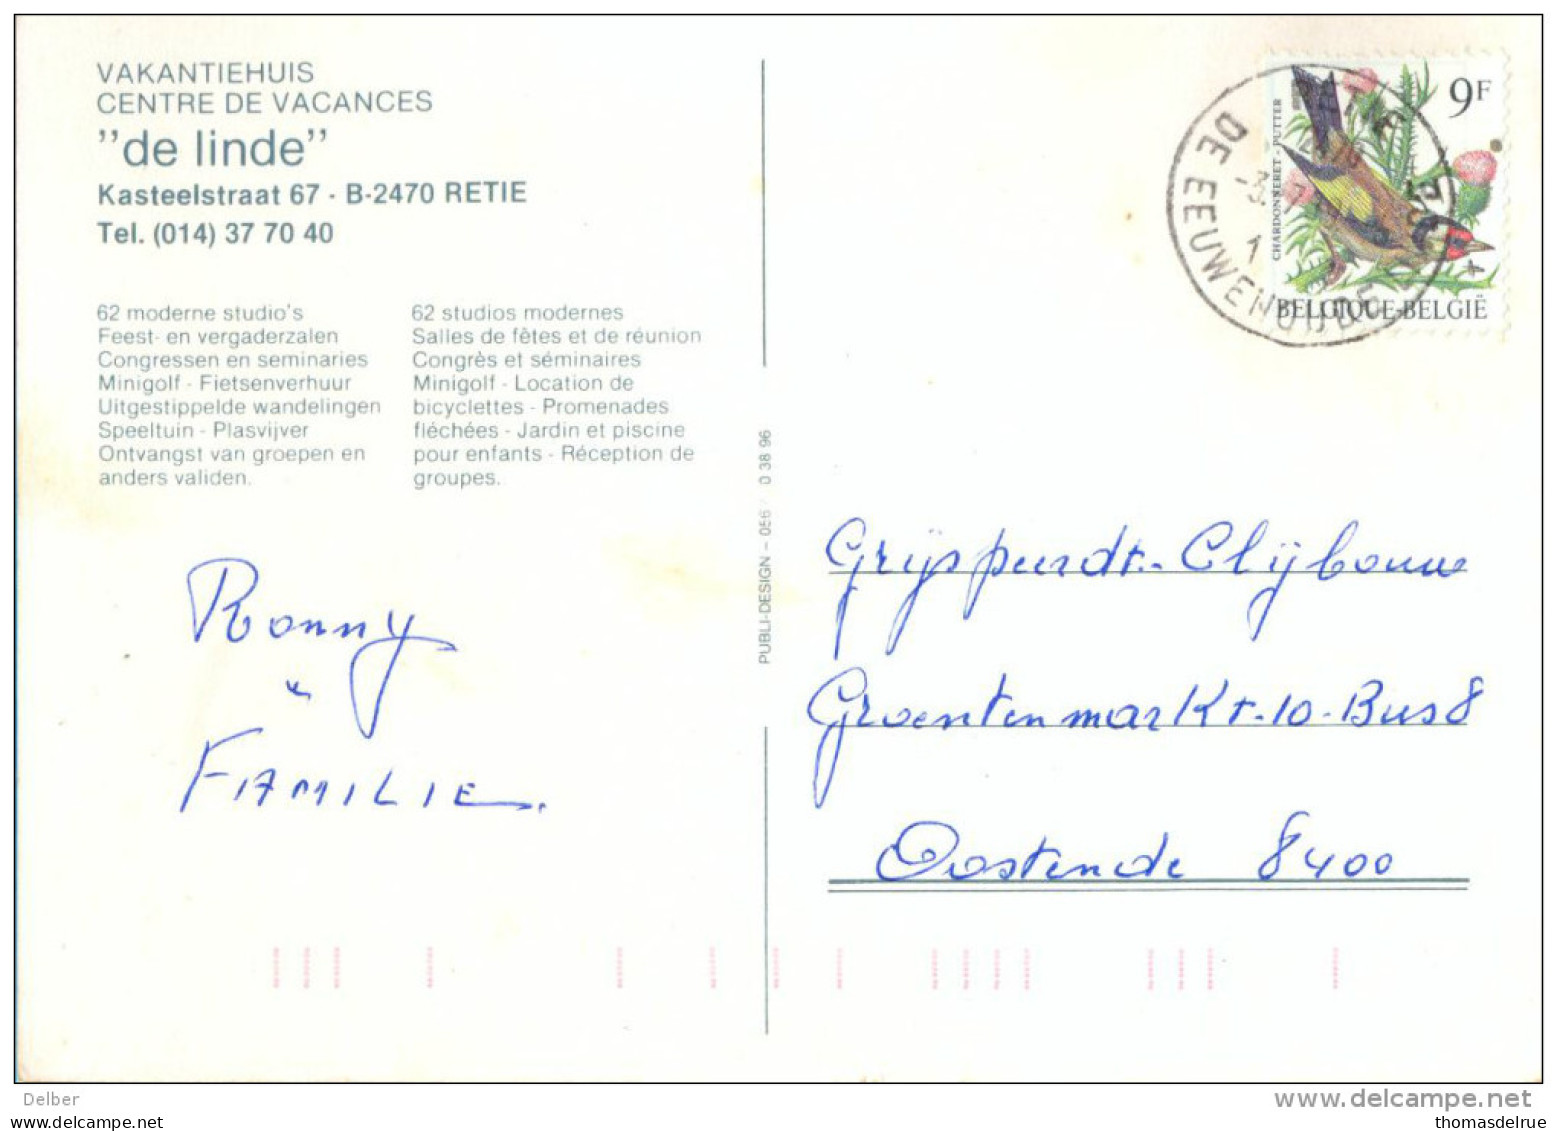 VAKANTIEHUIS
CENTRE DE VACANCES
"de linde"
Kasteelstraat 67 - B-2470 RETIE
Tel. (014) 37 70 40
62 moderne studio's
Feest- en vergaderzalen
Congressen en seminaries
Minigolf - Fietsenverhuur
Uitgestippelde wandelingen
Speeltuin - Plasvijver
Ontvangst van groepen en
anders validen.
62 studios modernes
Salles de fêtes et de réunion
Congrès et séminaires
Minigolf - Location de
bicyclettes - Promenades
fléchées - Jardin et piscine
pour enfants - Réception de
groupes.
Ronny
&
FAMILIE.
PUBLI-DESIGN - 056 / 0 38 96
9F
CHARDONNERET - PUTTER
BELGIQUE-BELGIË
DE EEUWENOUDE
Grijspeerdt - Clijbouw
Groentenmarkt-10-Bus8
Oostende 8400
Delber
www.delcampe.net
thomasdelrue